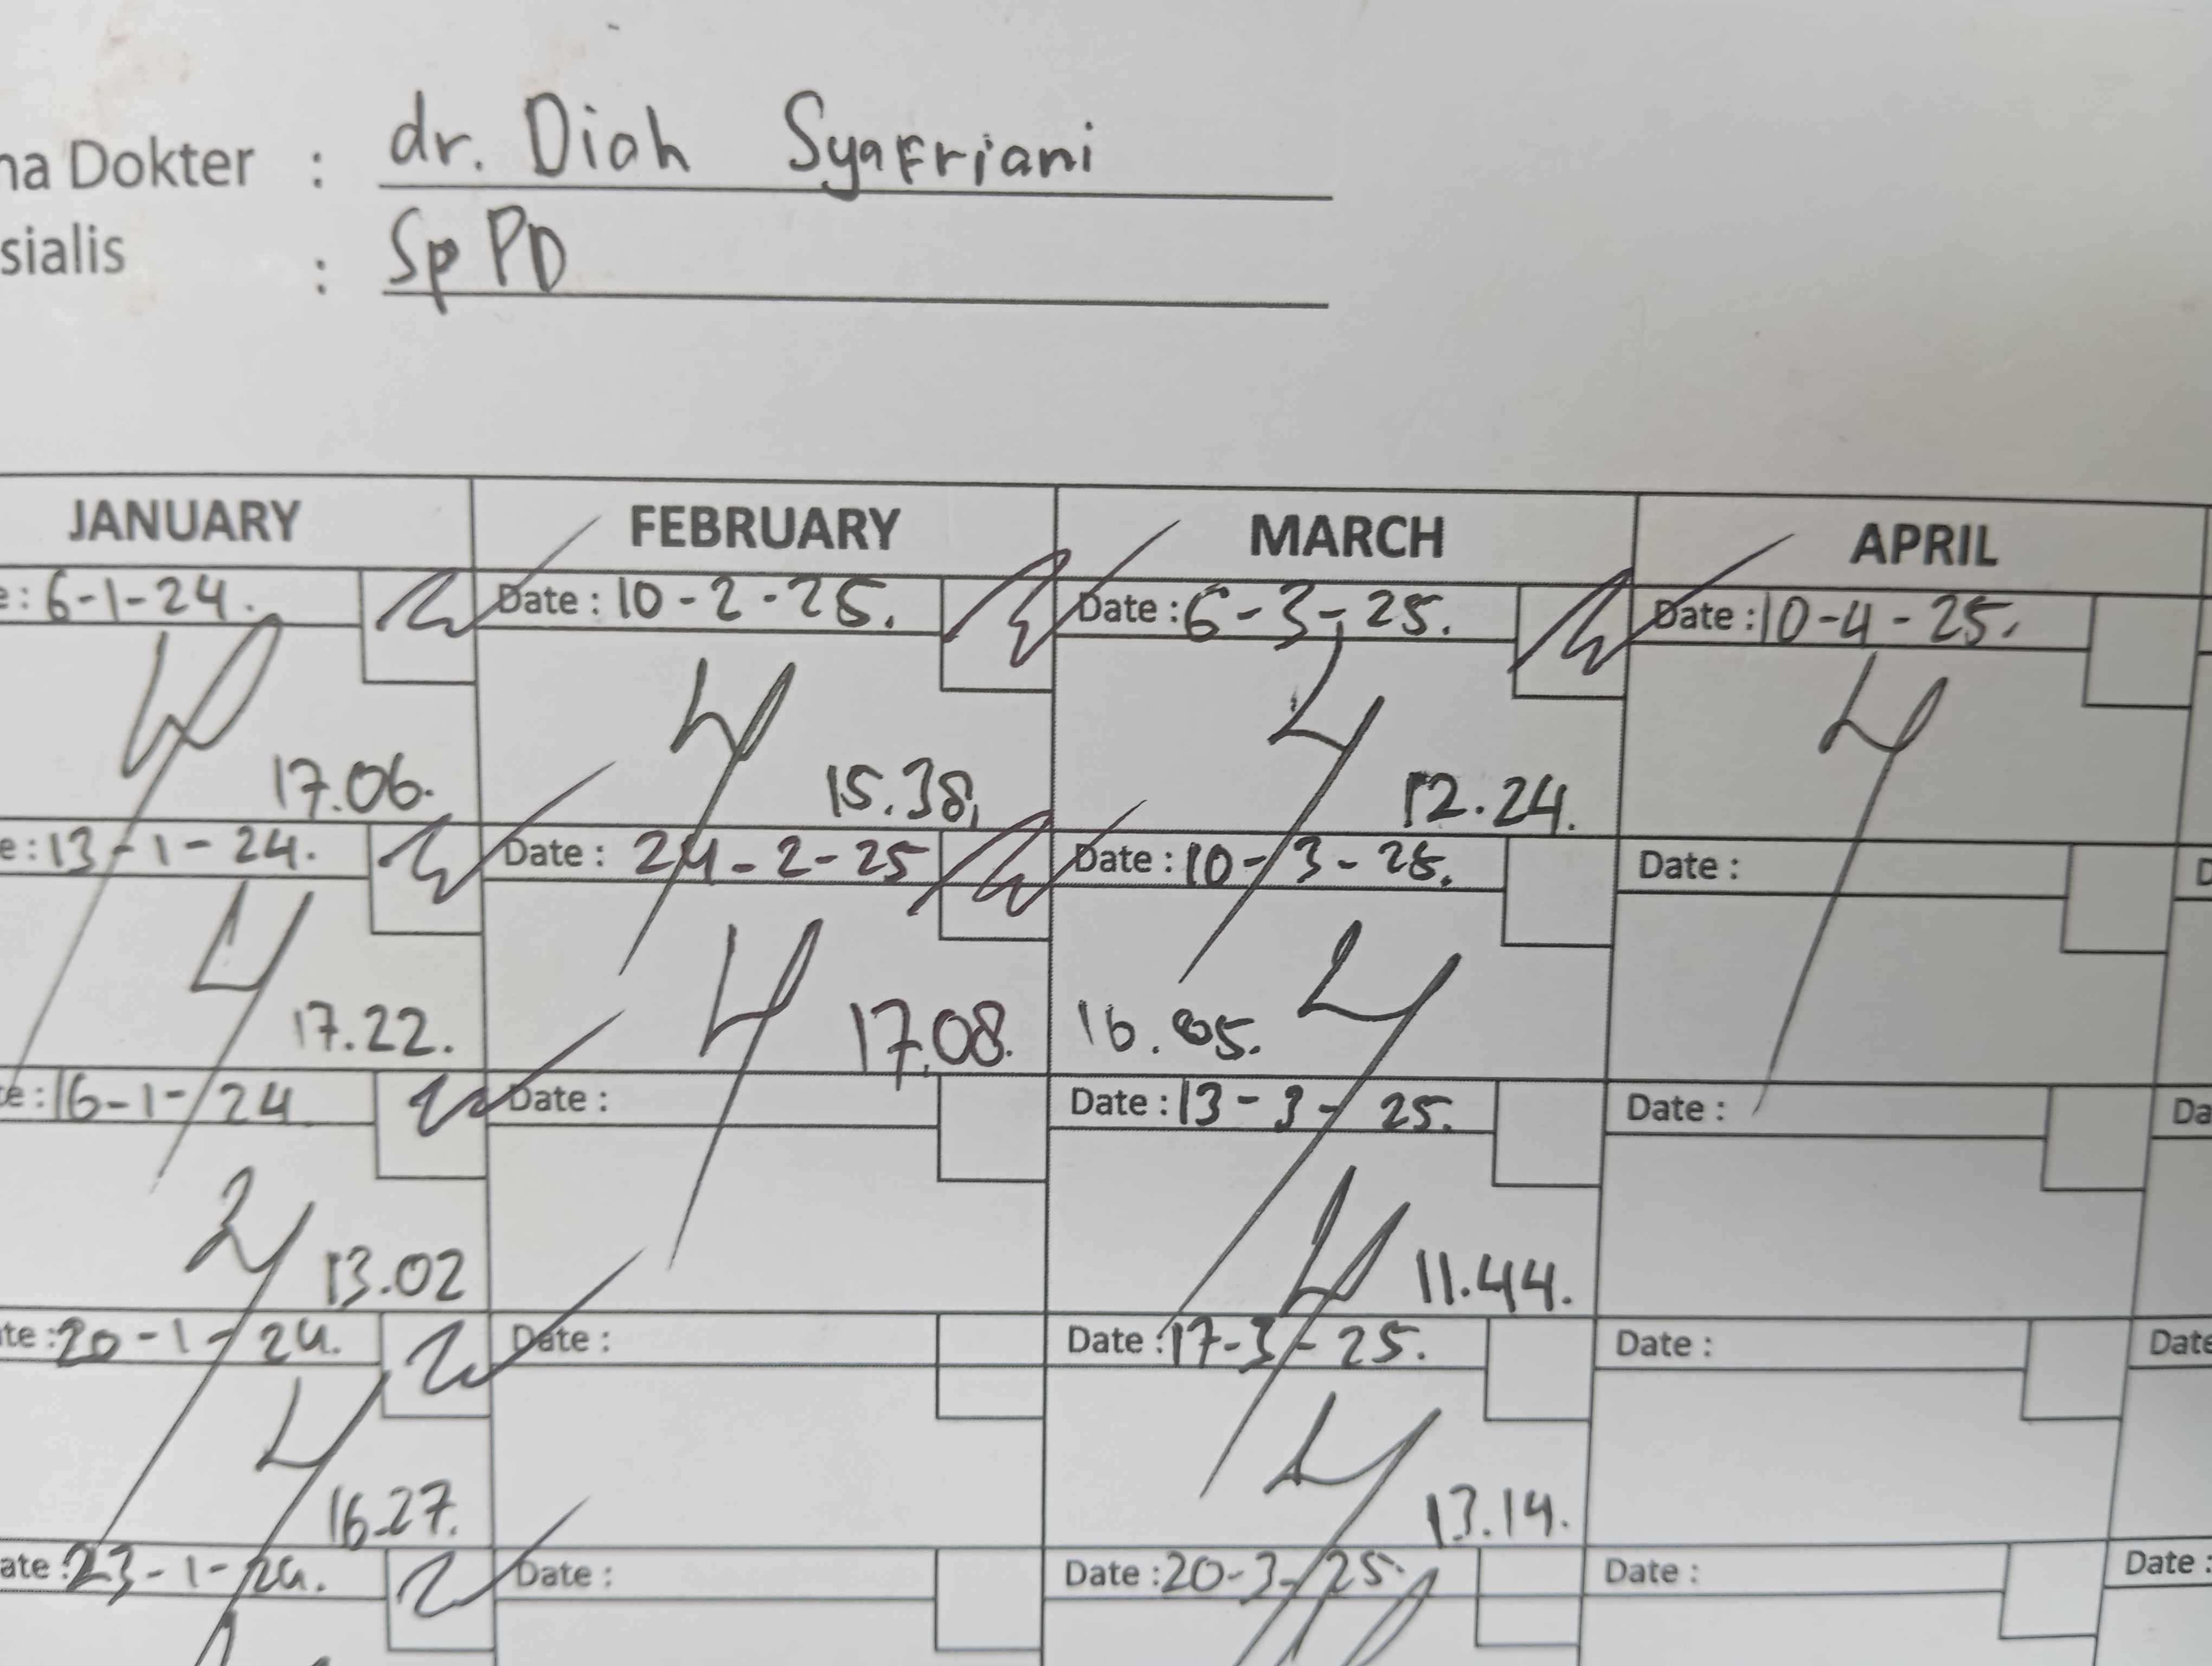 na Dokter : dr. Diah Syafriani
sialis : Sp PD
JANUARY FEBRUARY MARCH APRIL
e : 6-1-24. Date : 10-2-25. Date : 6-3-25. Date : 10-4-25.
17.06. 15.38. 12.24.
e : 13-1-24. Date : 24-2-25 Date : 10-3-25. Date : D
17.22. 17.08. 16.05.
te : 16-1-24 Date : Date : 13-3-25. Date : Da
13.02 11.44.
te : 20-1-24. Date : Date : 17-3-25. Date : Date
16.27. 13.14.
ate : 23-1-24. Date : Date : 20-3-25. Date : Date :